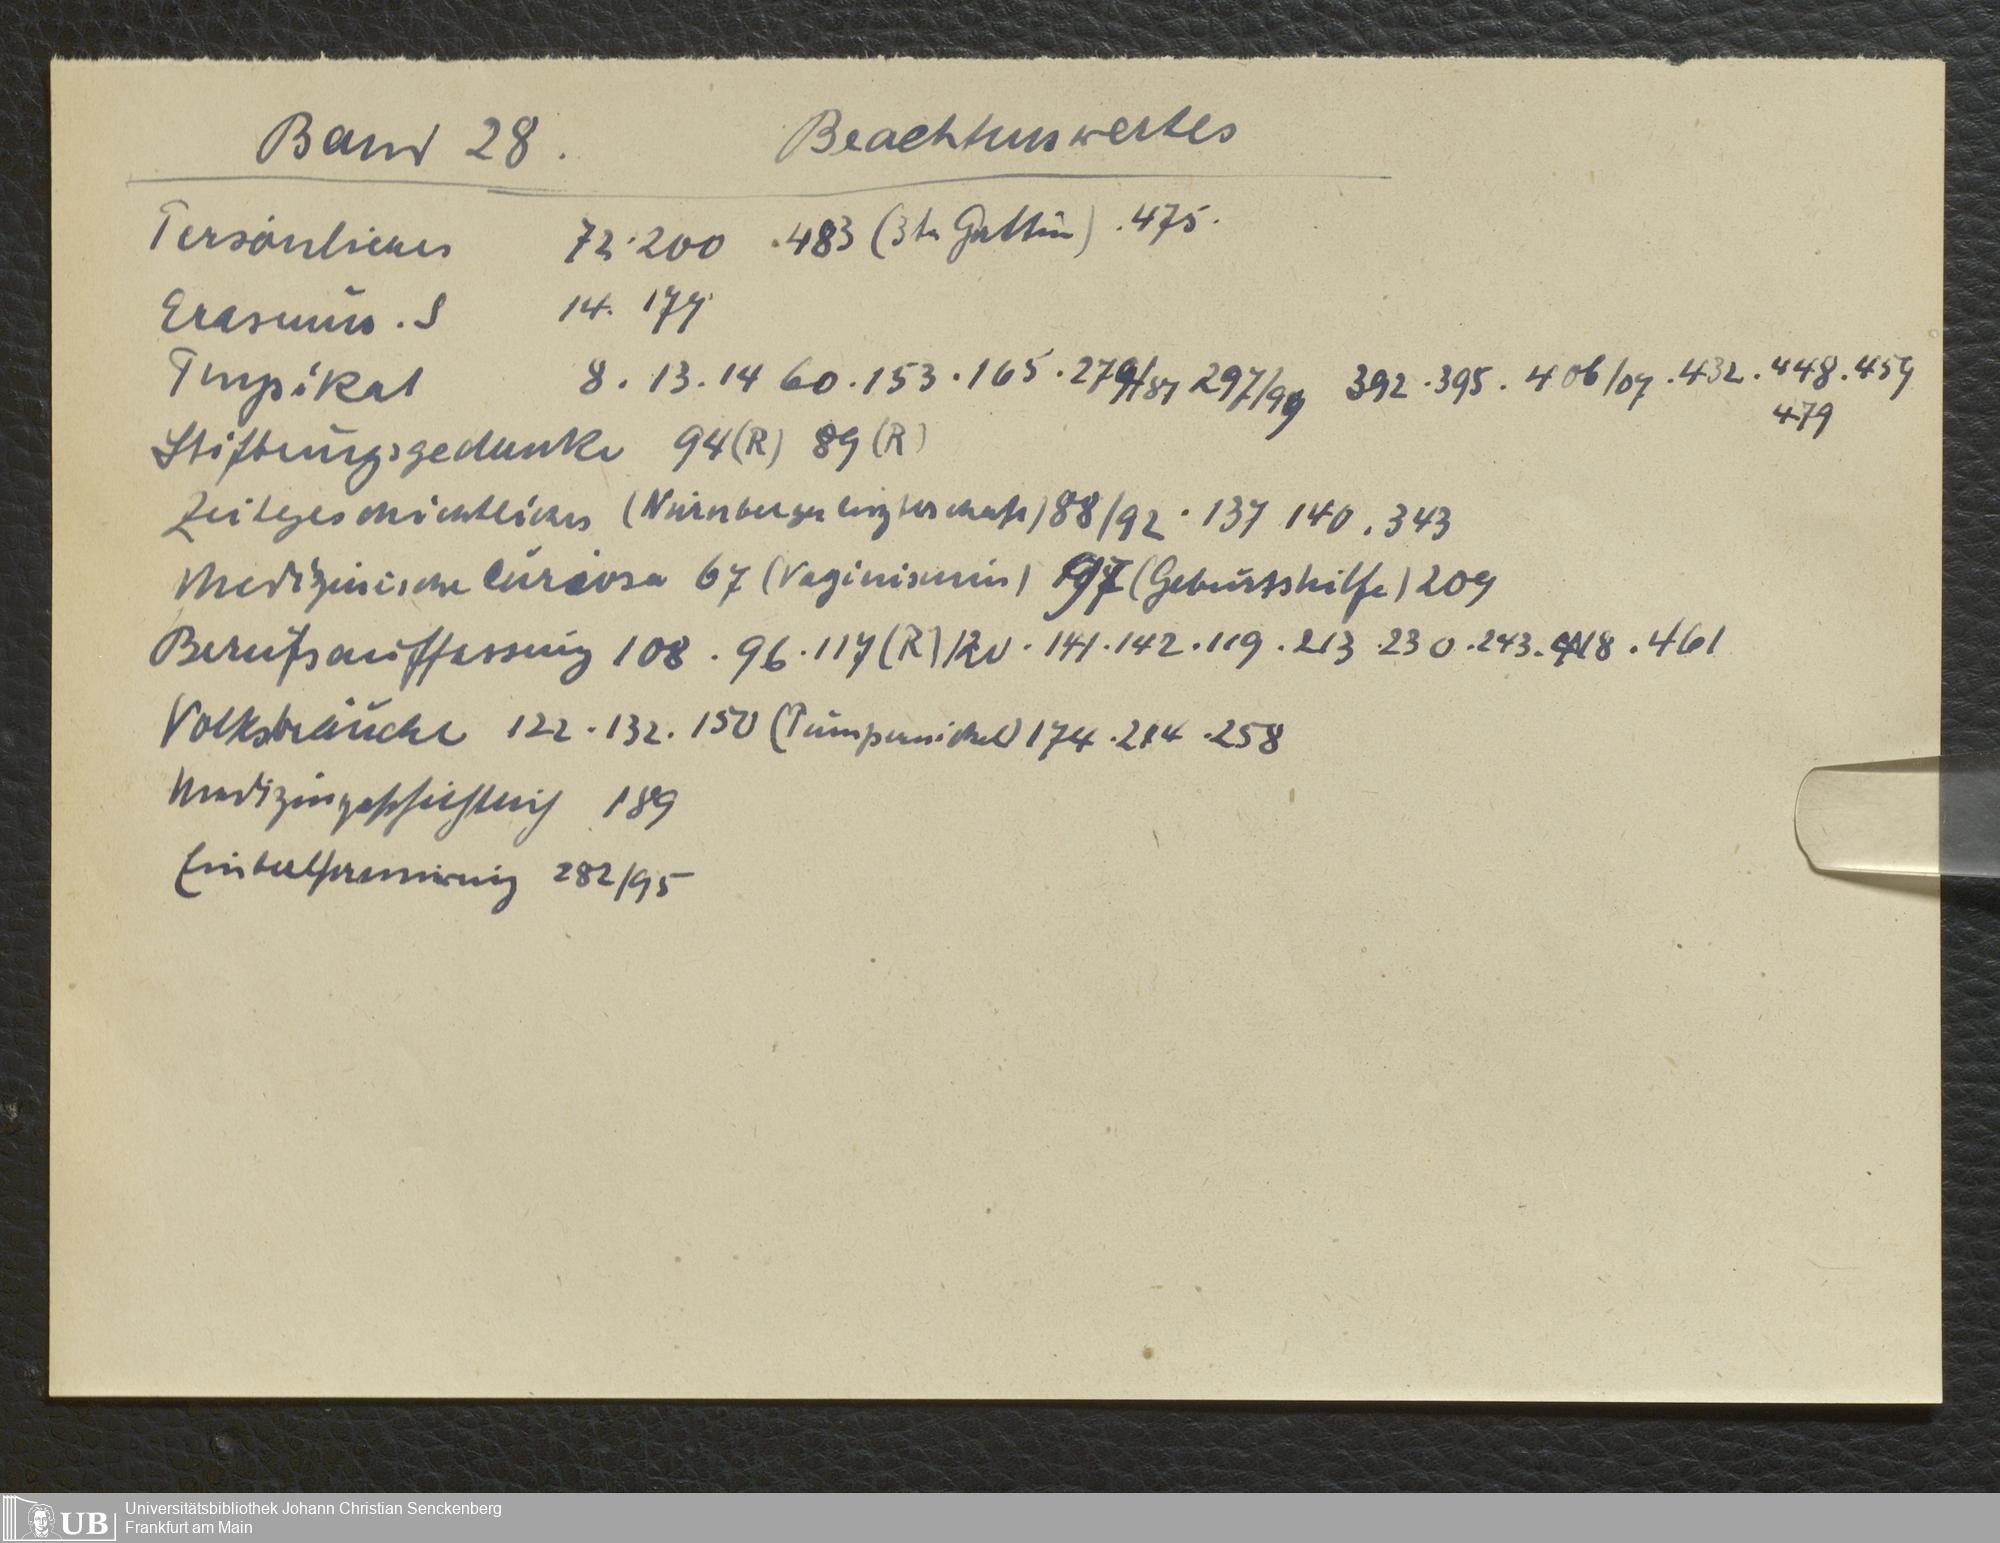 Band 28. Beachtenswertes
Persönliches 72.200 .483 (3te Gattin) .475.
Erasmus. S 14. 177
8. 13. 14 60. 153. 165. 279/ 297/99 392. 395. 406/07. 432. 448. 459
479
Stiftungsgedanke 94(R) 89(R)
Zeitgeschichtliches (Nürnberger 88/92. 137 140. 343
Medizinische Curiosa 67 (Vaginismus) 97 (Geburtshilfe) 209
Berufsauffassung 108. 96. 117(R) 120. 141. 142. 119. 213. 230. 243. 418. 461
Volksbräuche 122. 132. 150 (Pumpernickel) 174. 214. 258
Medizingeschichtlich 189
282/95
UB Universitätsbibliothek Johann Christian Senckenberg
Frankfurt am Main